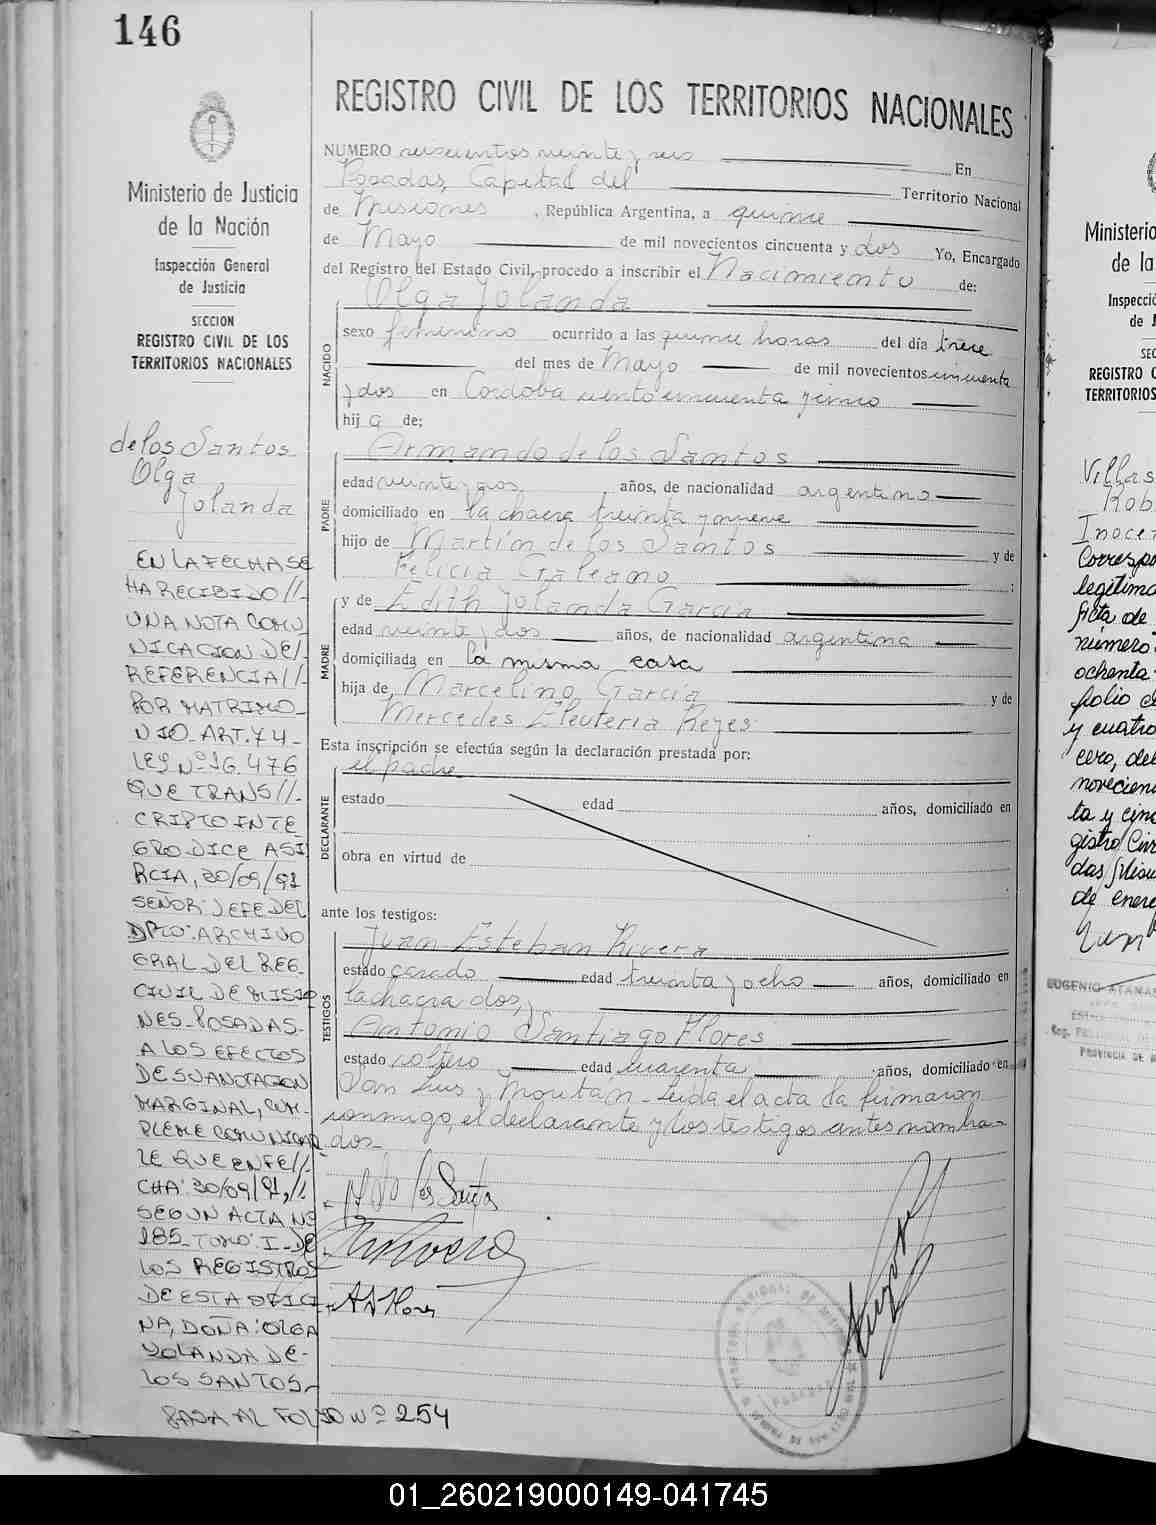 146
Ministerio de Justicia
de la Nación
Inspección General
de Justicia
SECCION
REGISTRO CIVIL DE LOS
TERRITORIOS NACIONALES
de los Santos
Olga
Yolanda
EN LA FECHA SE
HA RECIBIDO //-
UNA NOTA COMU
NICACION DE/-
REFERENCIA //-
POR MATRIMO_
NIO_ ART. 74_
LEY Nº 16.476
QUE TRANS //-
CRIPTO INTE_
GRO DICE ASI
RCIA, 30/09/91
SEÑOR: JEFE DEL
DPTO: ARCHIVO
GRAL DEL REG_
CIVIL DE MISIO
NES-POSADAS-
A LOS EFECTOS
DE SU ANOTACION
MARGINAL, CUM-
PLEME COMUNICAR
LE QUE EN FE//-
CHA: 30/09/91, //
SEGUN ACTA Nº
185_ TOMO: I_ DE
LOS REGISTROS
DE ESTA OFICI
NA, DOÑA: OLGA
YOLANDA DE-
LOS SANTOS-
PASA AL FOLIO Nº 254
REGISTRO CIVIL DE LOS TERRITORIOS NACIONALES
NUMERO seiscientos veinte y seis En
Posadas, Capital del Territorio Nacional
de Misiones, República Argentina, a quince
de Mayo de mil novecientos cincuenta y dos Yo, Encargado
del Registro del Estado Civil, procedo a inscribir el Nacimiento de:
Olga Yolanda
NACIDO
sexo femenino ocurrido a las quince horas del día trece
del mes de Mayo de mil novecientos cincuenta
y dos en Cordoba ciento cincuenta y cinco
hija de:
Armando de los Santos
PADRE
edad veinte y dos años, de nacionalidad argentino
domiciliado en la chacra treinta y nueve
hijo de Martín de los Santos y de
Felicia Galeano ;
y de Edith Yolanda García
MADRE
edad veinte y dos años, de nacionalidad argentina
domiciliada en la misma casa
hija de, Marcelino García y de
Mercedes Eleuteria Reyes
Esta inscripción se efectúa según la declaración prestada por:
el padre
DECLARANTE
estado edad años, domiciliado en
obra en virtud de
ante los testigos:
Juan Esteban Rivera
TESTIGOS
estado casado edad treinta y ocho años, domiciliado en
la chacra dos, y
Antonio Santiago Flores
estado soltero edad cuarenta años, domiciliado en
San Luis y Moritán - Leida el acta la firmaron
conmigo, el declarante y los testigos antes nombra-
dos-
A do los Santos
A S Flores
Ministerio
de la
Inspecció
de J
SEC
REGISTRO C
TERRITORIOS
Villas
Rob
Inocen
Correspo
legitima
ficta de
número
ochenta
folio d
y cuatro
cero, del
novecien
ta y cinc
gistro Civi
das, Misio
de enero
EUGENIO ATANAS
PROVINCIA DE M
01_260219000149-041745